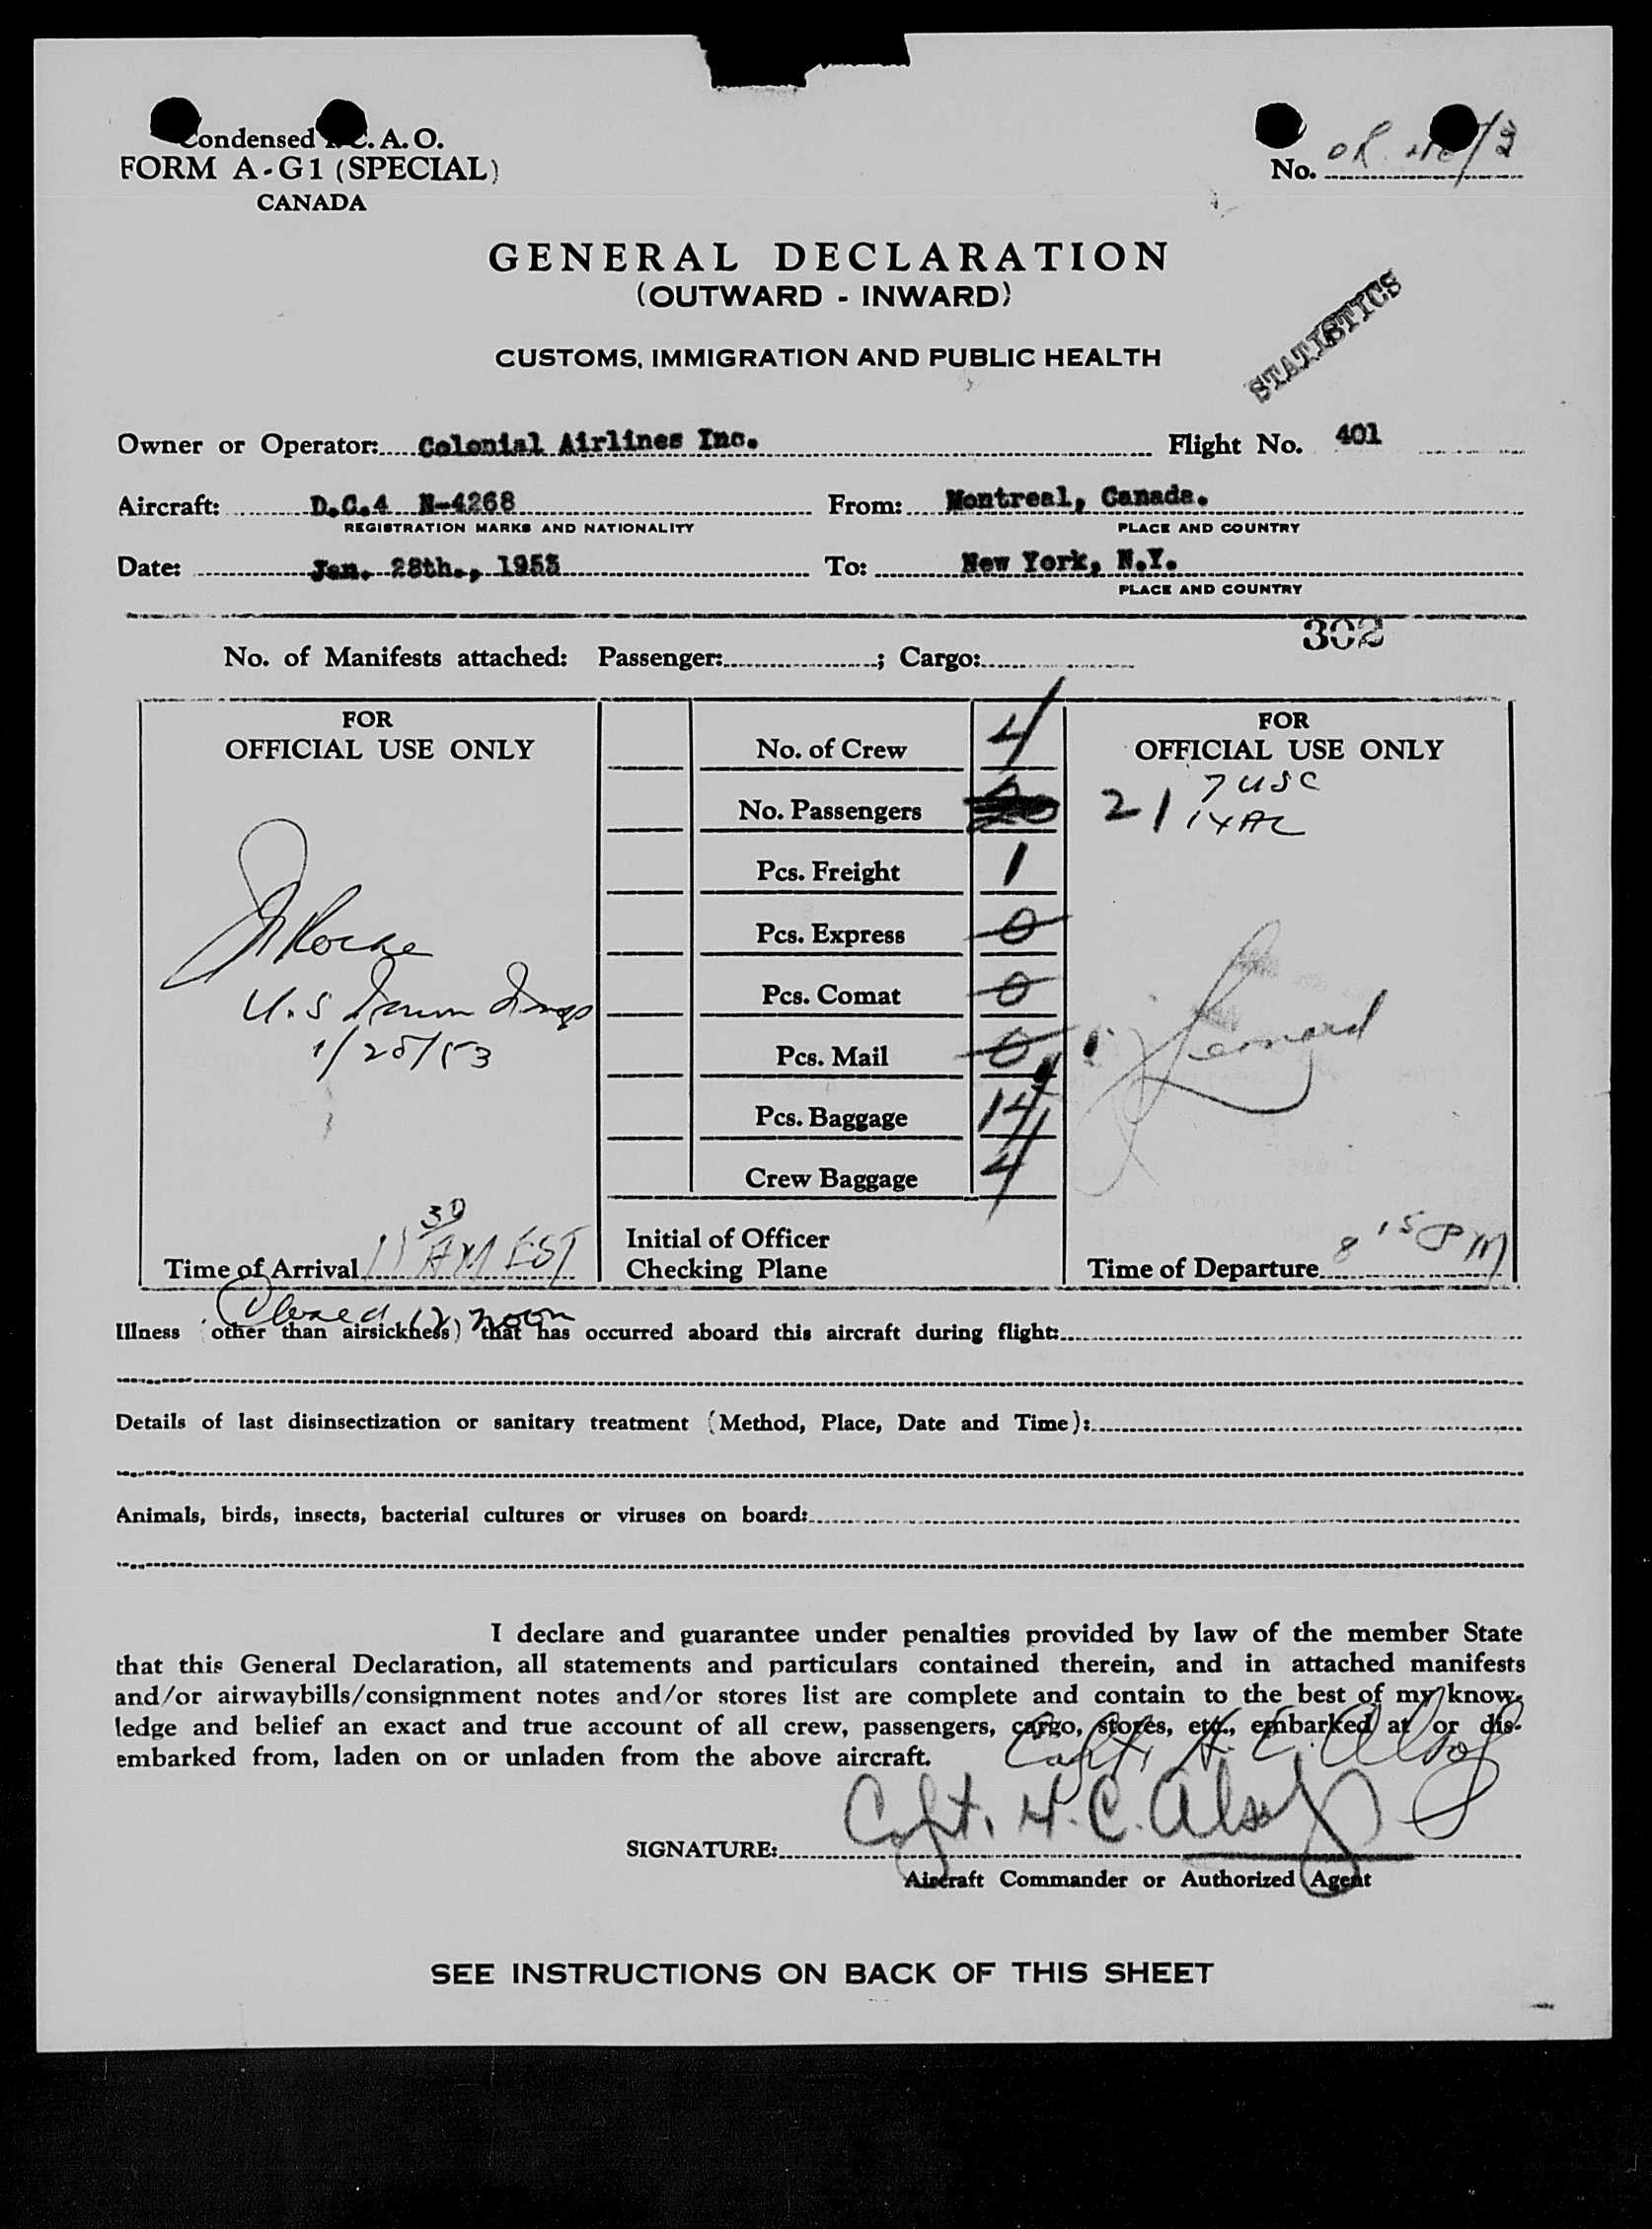 Condensed I.C.A.O.
FORM A-G1 (SPECIAL)
CANADA
No. OR
GENERAL DECLARATION
(OUTWARD - INWARD)
STATISTICS
CUSTOMS, IMMIGRATION AND PUBLIC HEALTH
Owner or Operator: Colonial Airlines Inc. Flight No. 401
Aircraft: D.C.4 N-4268 From: Montreal, Canada.
REGISTRATION MARKS AND NATIONALITY PLACE AND COUNTRY
Date: Jan. 28th., 1953 To: New York, N.Y.
PLACE AND COUNTRY
302
No. of Manifests attached: Passenger: ; Cargo:
FOR
OFFICIAL USE ONLY
U.S
1/28/53
Time of Arrival 11 30 AM EST
Closed 12 noon
No. of Crew 4
No. Passengers
Pcs. Freight 1
Pcs. Express 0
Pcs. Comat 0
Pcs. Mail 0
Pcs. Baggage 14
Crew Baggage 4
Initial of Officer
Checking Plane
FOR
OFFICIAL USE ONLY
21 7 USC
14 AL
Leonard
Time of Departure 8 15 PM
Illness (other than airsickness) that has occurred aboard this aircraft during flight:
Details of last disinsectization or sanitary treatment (Method, Place, Date and Time):
Animals, birds, insects, bacterial cultures or viruses on board:
I declare and guarantee under penalties provided by law of the member State
that this General Declaration, all statements and particulars contained therein, and in attached manifests
and/or airwaybills/consignment notes and/or stores list are complete and contain to the best of my know-
ledge and belief an exact and true account of all crew, passengers, cargo, stores, etc., embarked at or dis-
embarked from, laden on or unladen from the above aircraft.
Capt. H. C. Alsop
SIGNATURE: Capt. H. C. Alsop
Aircraft Commander or Authorized Agent
SEE INSTRUCTIONS ON BACK OF THIS SHEET